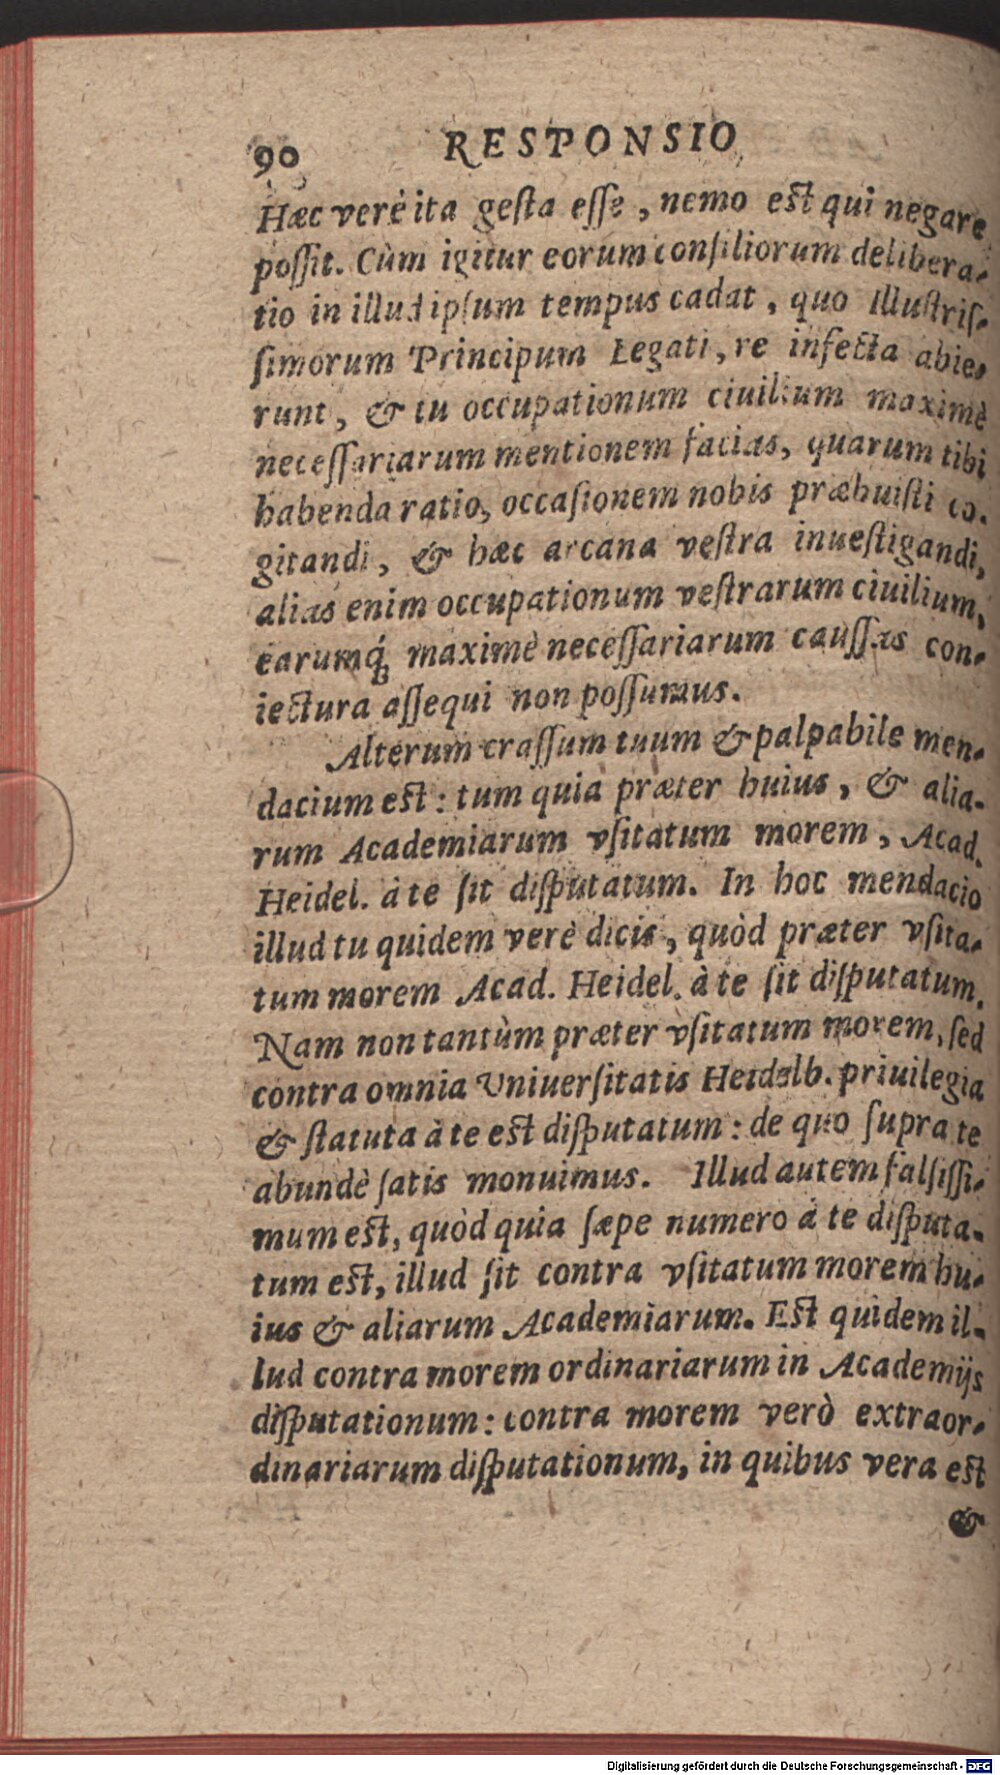 90 RESPONSIO
Hæc verè ita gesta esse, nemo est qui negare
possit. Cùm igitur eorum consiliorum delibera-
tio in illud ipsum tempus cadat, quo Illustris-
simorum Principum Legati, re infecta abie-
runt, & tu occupationum ciuilium maximè
necessariarum mentionem facias, quarum tibi
habenda ratio, occasionem nobis præbuisti co-
gitandi, & hæc arcana vestra inuestigandi,
alias enim occupationum vestrarum ciuilium,
earumq́ maximè necessariarum caussas con-
iectura assequi non possumus.
Alterum crassum tuum & palpabile men-
dacium est: tum quia præter huius, & alia-
rum Academiarum vsitatum morem, Acad.
Heidel. à te sit disputatum. In hoc mendacio
illud tu quidem verè dicis, quòd præter vsita-
tum morem Acad. Heidel. à te sit disputatum.
Nam non tantùm præter vsitatum morem, sed
contra omnia Vniuersitatis Heidelb. priuilegia
& statuta à te est disputatum: de quo supra te
abundè satis monuimus. Illud autem falsissi-
mum est, quòd quia sæpe numero à te disputa-
tum est, illud sit contra vsitatum morem hu-
ius & aliarum Academiarum. Est quidem il-
lud contra morem ordinariarum in Academijs
disputationum: contra morem verò extraor-
dinariarum disputationum, in quibus vera est
&
Digitalisierung gefördert durch die Deutsche Forschungsgemeinschaft - DFG